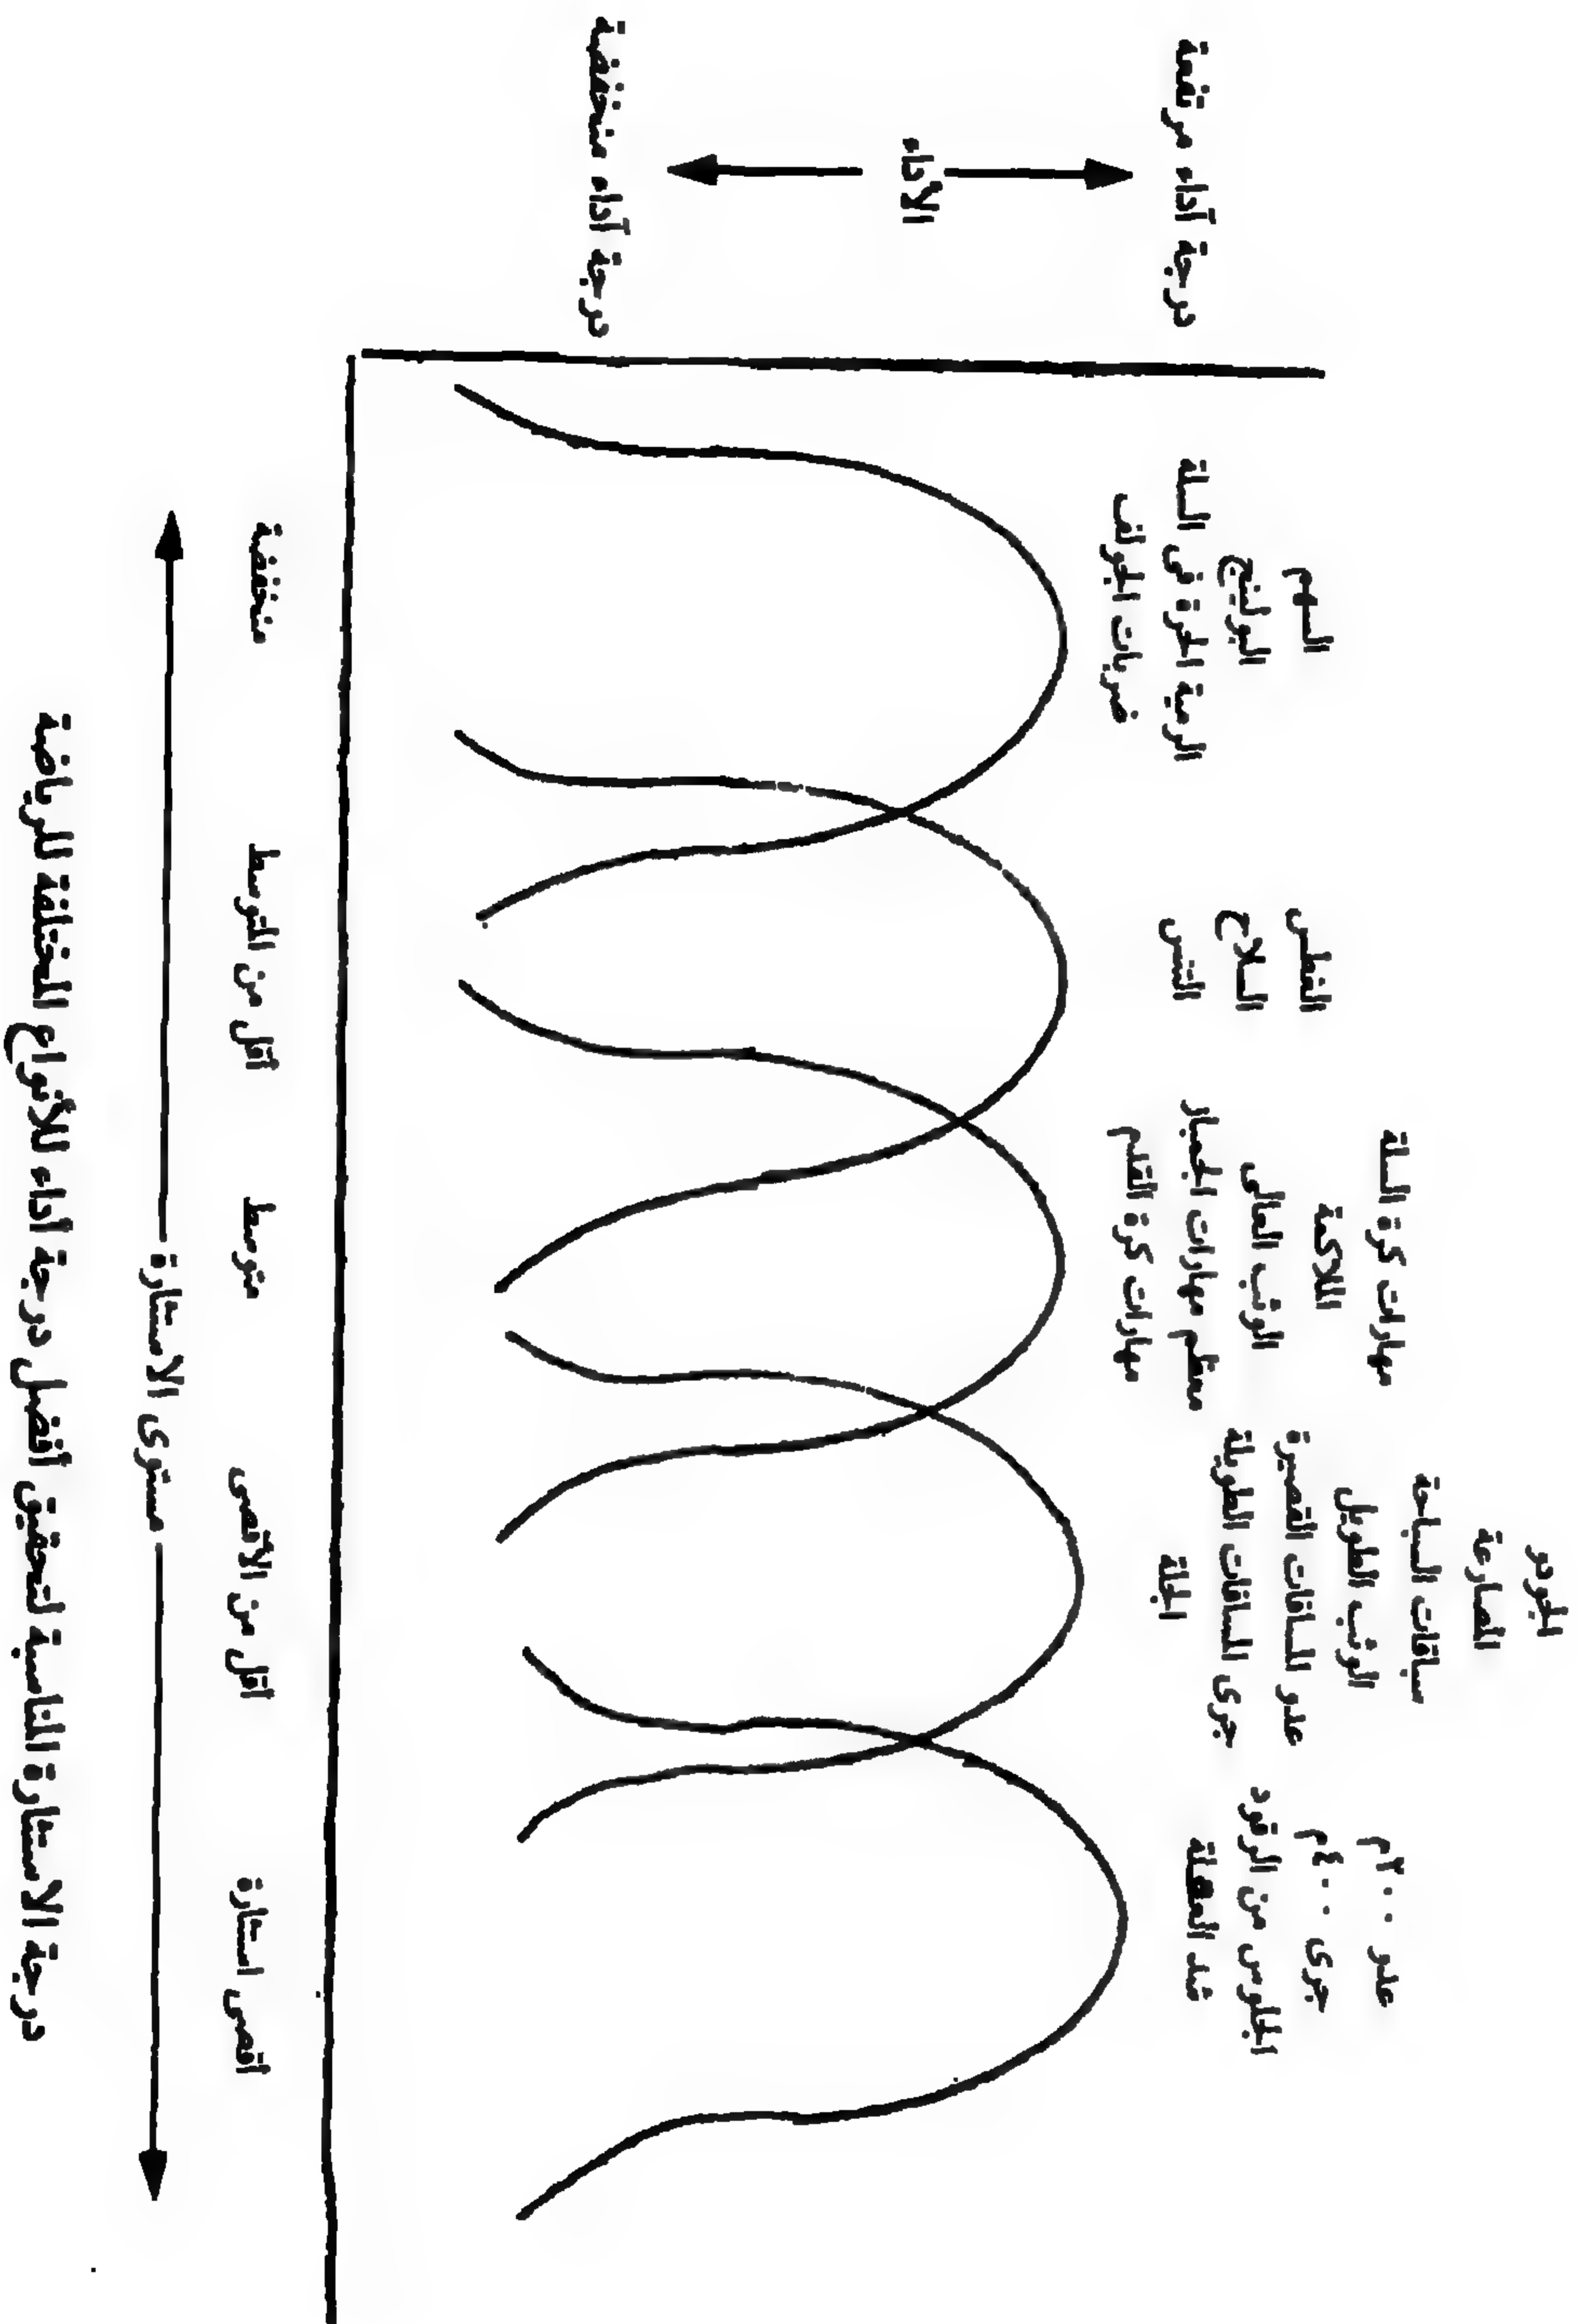 درجة آداء مرتفعة
الأداء
درجة آداء منخفضة
السهم
البولينج
الرمية الحرة فى السلة
ضربات الجولف
الغطس
السلاح
التنس
مهارات كرة السلة
الملاكمة
الوثب العالى
معظم مهارات الجمباز
مهارات كرة القدم
الجودو
المصارعة
سباقات السباحة
الوثب الطويل
عدو للمسافات القصيرة
جرى للمسافات الطويلة
الجلة
عدو ٢٠٠م
جرى ٤٠٠م
الجلوس من الرقود
شد العقلة
منخفضة
اقل من المتوسط
متوسط
اقل من الأقصى
اقصى استثارة
مستوى الاستثارة
درجة الاستثارة المناسبة لتحقيق أفضل درجة أداء للأنواع المختلفة للرياضة